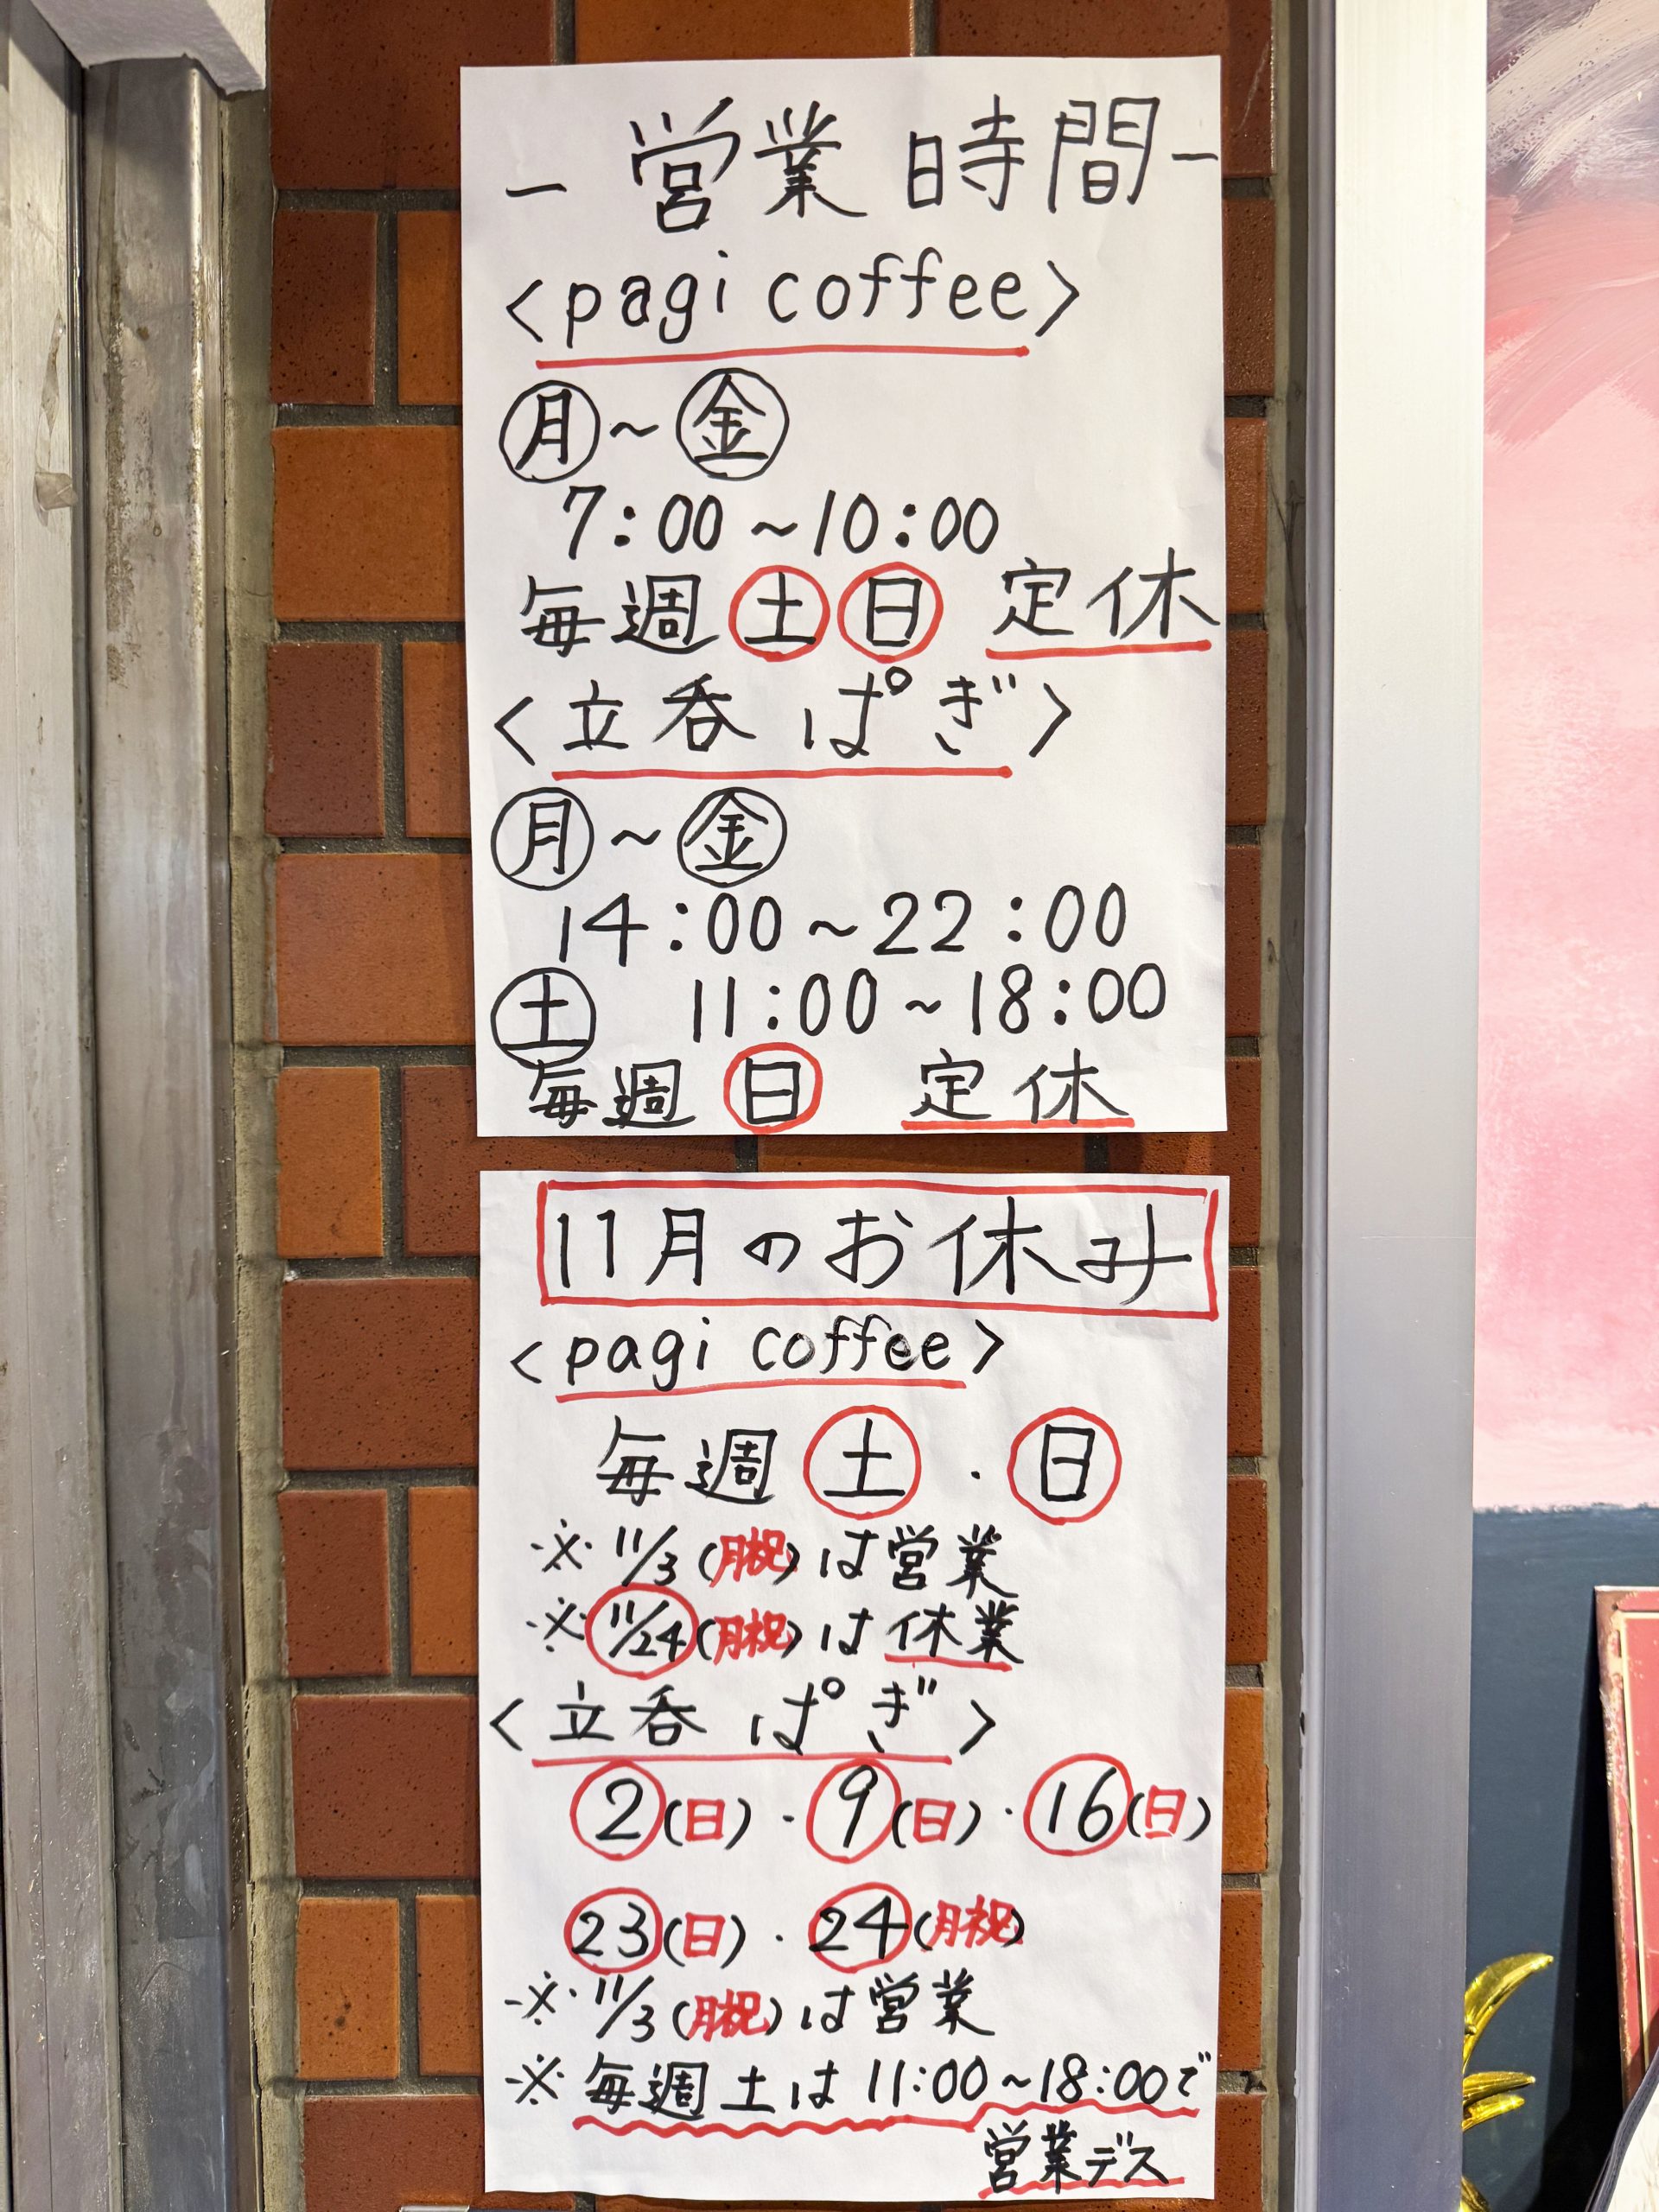 －営業時間－
<pagi coffee>
㊊～㊎
7:00～10:00
毎週㊏㊐ 定休
<立呑 ぱぎ>
㊊～㊎
14:00～22:00
㊏ 11:00～18:00
毎週㊐ 定休
11月のお休み
<pagi coffee>
毎週㊏・㊐
※11/3(月祝)は営業
※11/24(月祝)は休業
<立呑 ぱぎ>
②(日)・⑨(日)・⑯(日)
㉓(日)・㉔(月祝)
※11/3(月祝)は営業
※毎週土は11:00～18:00で
営業デス